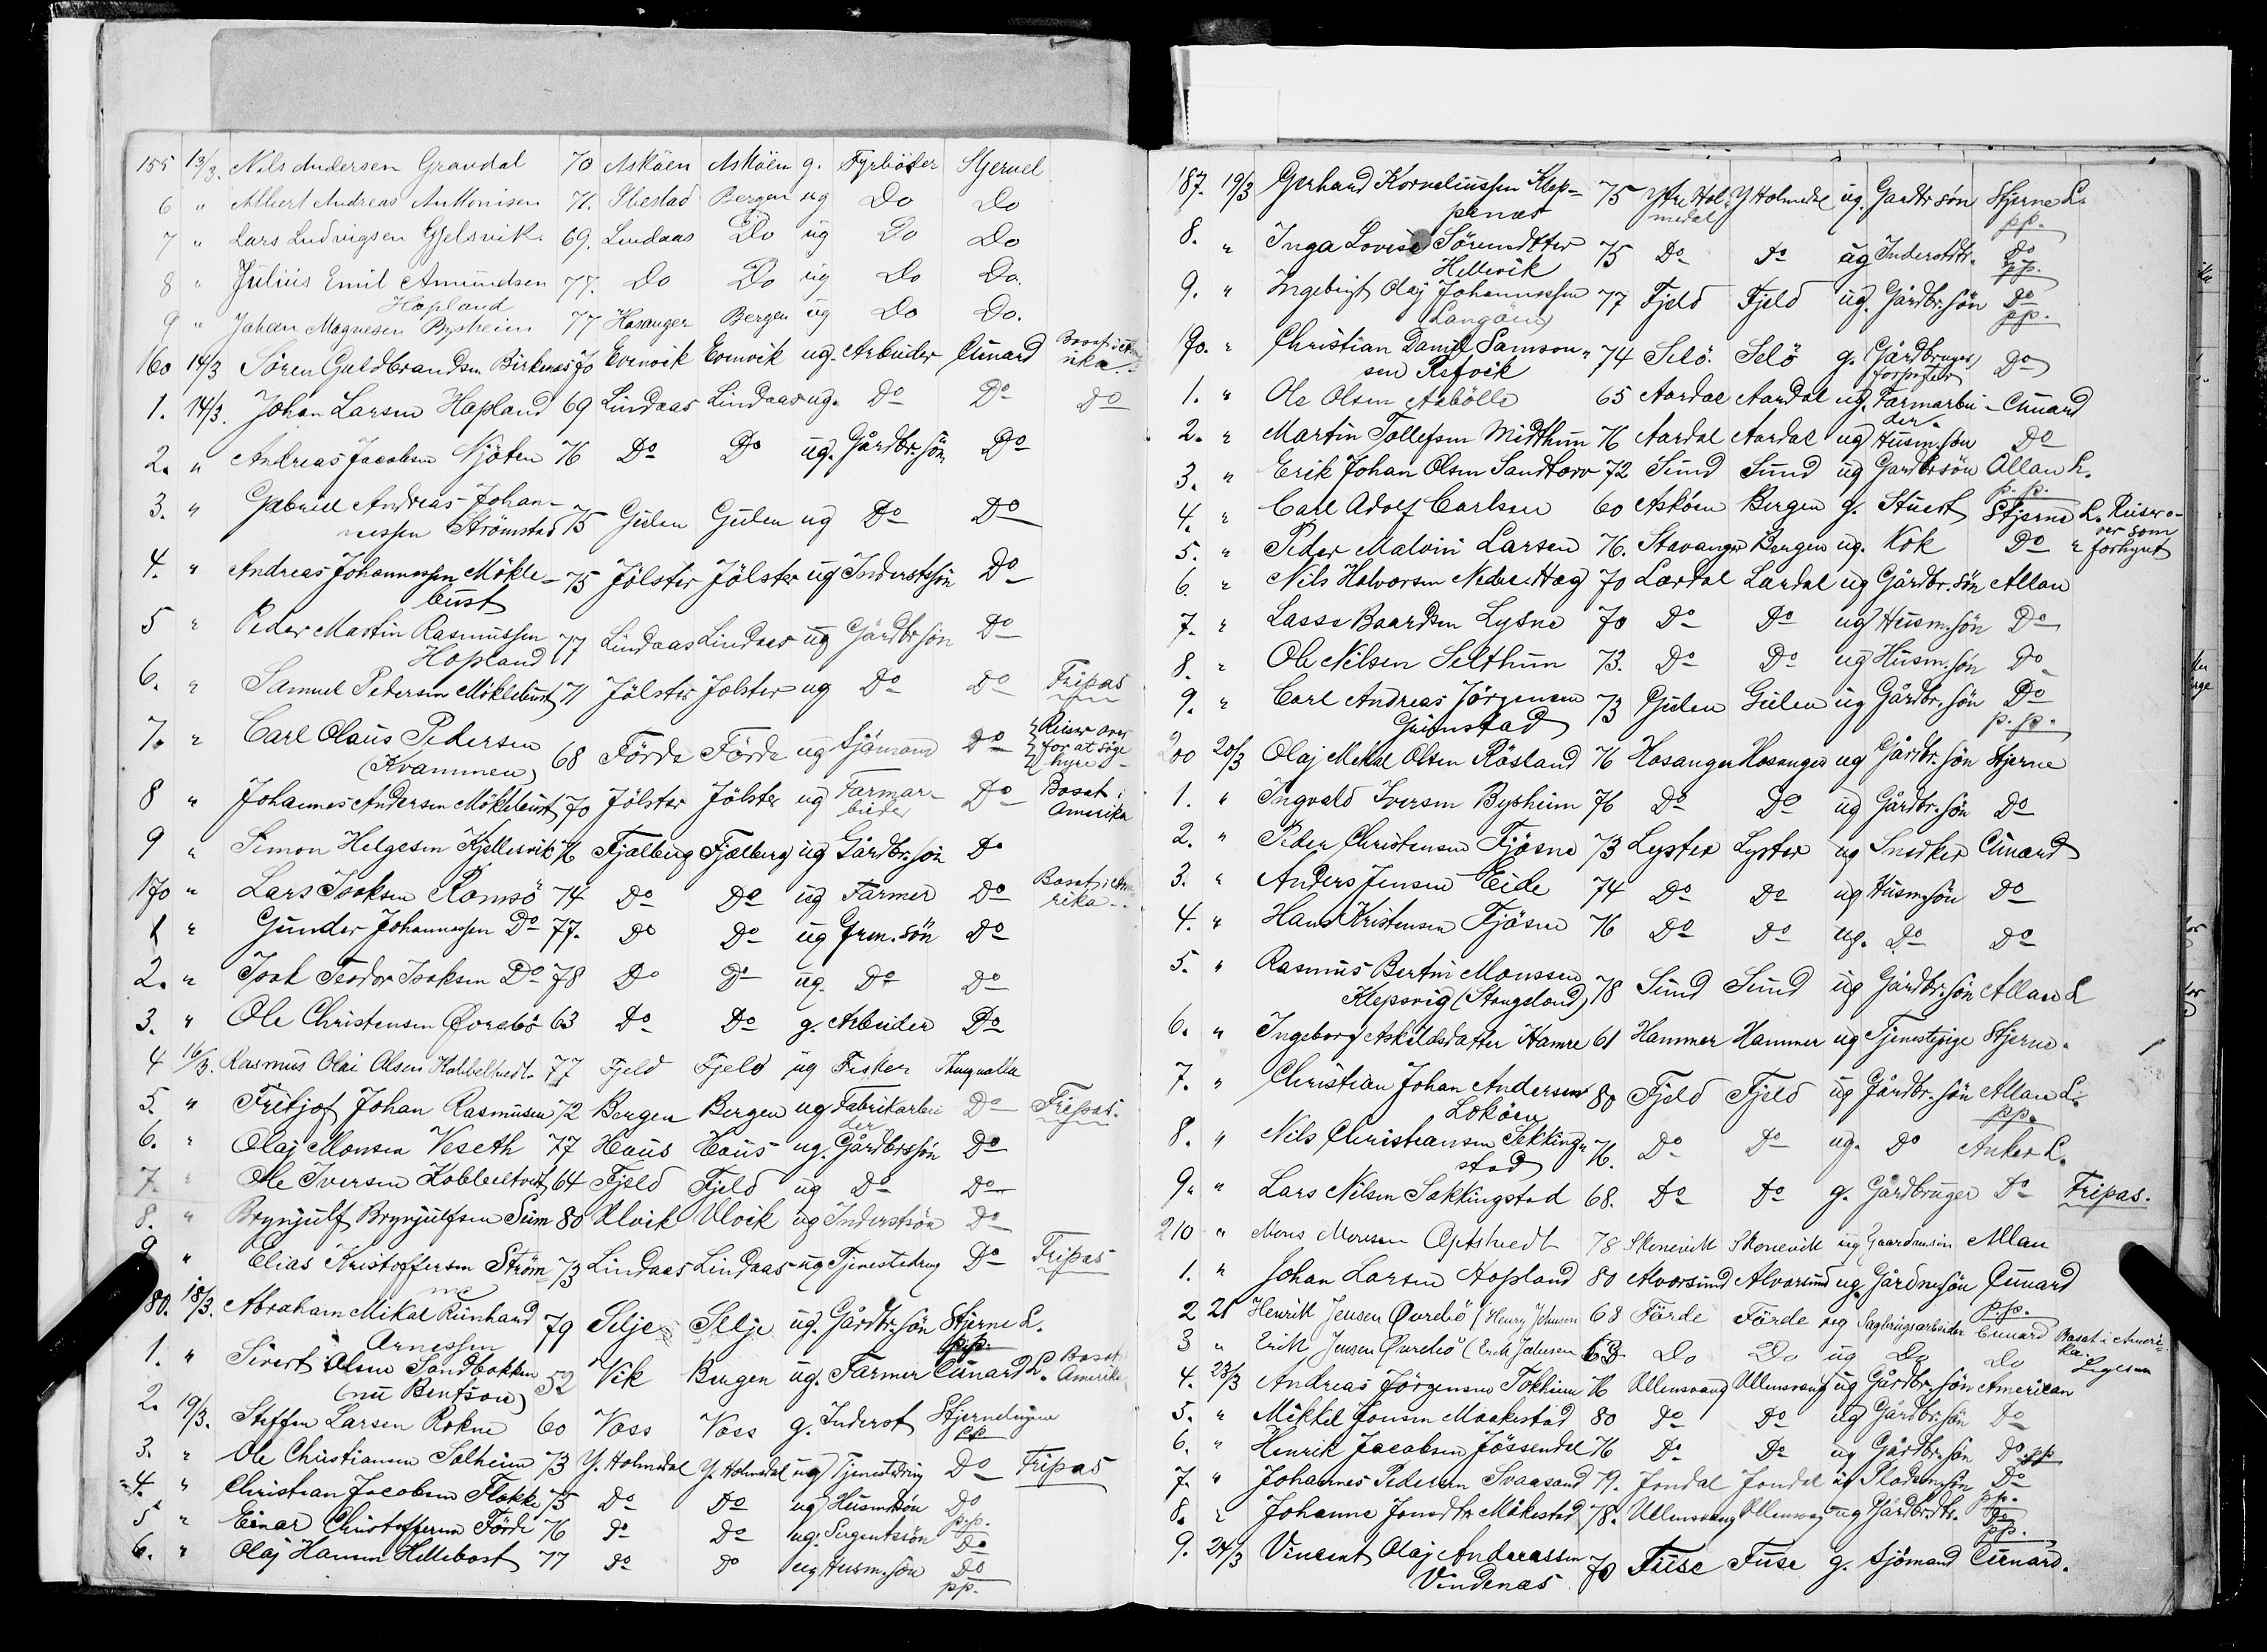 155 13/3. Nils Andersen Gravdal 70 Asköen Asköen g. Fyrböder Stjernel
6 " Albert Andreas Anttonisen 71. Bergen ug Do Do
7 " Lars Ludvigsen Gjelsvik 69. Lindaas Do ug Do Do
8 " Julius Emil Amundsen 77. Do Do ug Do Do.
Hopland
9 " Johan Magnesen Bysheim 77 Hosanger Bergen ug Do Do.
160 14/3 Sören Guldbrandsen Birkenæs 70 Evenvik Evenvik ug. Arbeider Cunard Bosat i Ame
rika.
1. 14/3. Johan Larsen Hopland 69 Lindaas Lindaas ug. Do Do Do
2. " Andreas Jacobsen Njöten 76 Do Do ug. Gårdbr. sön Do
3. " Gabriel Andreas Johan-
nessen Strömstad 75 Gulen Gulen ug Do Do
4. " Andreas Johannessen Mökle- 75 Jölster Jölster ug Inderstsön Do
bust
5 " Peder Martin Rasmussen
Hopland 77 Lindaas Lindaas ug Gårdbr sön Do
6. " Samuel Pedersen Möklebust 71 Jölster Jolster ug Do Do Fripas
7. " Carl Olaus Pedersen 68 Förde Förde ug Sjömand Do Reiser over
(Kvammen) for at söge
hyre
8 " Johannes Andersen Möklebust 70 Jölster Jölster ug Farmar- Do Bosat i
bieder Amerika
9 " Simon Helgesen Kjellesvik 76 Fjælberg Fjælberg ug Gårdbr. sön Do
170 " Lars Isaksen Romsö 74 Do Do ug Farmer Do Bosat i Ame
rika
1 " Gunder Johannessen Do 77. Do Do ug Grm. sön Do
2. " Isak Teodor Isaksen Do 78 Do Do ug. Do Do
3. " Ole Christensen Övrebö 63 Do Do g. Arbeider Do
4 16/3. Rasmus Olai Olsen Kobbeltvedt. 77 Fjeld Fjeld ug Fisker Thingvalla
5. " Fritjof Johan Rasmusen 72 Bergen Bergen ug Fabrikarbei Do Fripas.
der
6. " Olaj Monsen Veseth 77 Haus Haus ug. Gårdbrsön Do
7. " Ole Iversen Kobbeltvet 64 Fjeld Fjeld ug Do Do
8. " Brynjulf Brynjulfsen Sum 80 Ulvik Ulvik ug Inderstsön Do
9 " Elias Kristoffersen Ström- 73 Lindaas Lindaas ug Tjenestedreng Do Fripas
me
80. 18/3. Abraham Mikal Rünhard 79 Selje Selje ug. Gårdbr. sön Stjerne L.
Arnessen pp.
1. " Sivert Olsen Sandbakken 52 Vik Bergen ug. Farmer Cunard L. Bosat i
(nu Bentson) Amerika
2. 19/3. Steffen Larsen Rokne 60 Voss Voss g. Inderst Stjernelinjen
pp
3. " Ole Christiansen Solheim 73 Y. Holmedal Y. Holmedal ug Tjenestedreng Do Fripas
4. " Christian Jacobsen Flokke 75 Do Do ug Husmdsön Do
pp.
5 " Einar Christoffersen Förde 76 Do Do ug. Sergentssön Do
6. " Olaj Hansen Hellebost 77 Do Do ug Husm. sön Do
pp.
187. 19/3 Gerhard Korneliussen Klep- 75 Ytre Hol- Y Holmedal ug. Gardbr sön Stjerne L.
penæs medal pp.
8. " Inga Lovise Sörensdtter 75 Do Do ug Inderstdtr. Do
Hellevik pp.
9. " Ingebrigt Olaj Johannessen 77 Fjeld Fjeld ug. Gårdbr. sön Do
Langöen pp.
90. " Christian Daniel Samson- 74 Selö. Selö g. Gårdbruger, Do
sen Refvik forpagter
1. " Ole Olsen Aabölle 65 Aardal Aardal ug. Farmarbei- Cunard
der.
2. " Martin Tollefsen Midthun 76 Aardal Aardal ug Husm. sön Do
3. " Erik Johan Olsen Sandtorv 72 Sund Sund ug Gardbrsön Allan L.
p. p.
4. " Carl Adolf Carlsen 60 Asköen Bergen g. Stuert Stjerne L. Reiser o-
ver som
5. " Peder Malvin Larsen 76. Stavanger Bergen ug. Kok Do " forhyret
6. " Nils Halvorsen Nedrehæg 70 Lærdal Lærdal ug Gårdbr. sön Allan
7. " Lasse Baardsen Lysne 70 Do Do ug Husm. sön Do
8. " Ole Nilsen Selthun 73. Do Do ug Husm. sön Do
9. " Carl Andreas Jörgensen 73 Gulen Gulen ug Gårdbr. sön Do
Grimstad p. p.
200 20/3 Olaj Mikal Olsen Rösland 76 Hosanger Hosanger ug Gårdbr. sön Stjerne
1. " Ingvald Iversen Bysheim 76 Do Do ug Gårdbr. sön Do
2. " Peder Christensen Fjösne 73 Lyster Lyster ug Snedker Cunard
3. " Anders Jensen Eide 74 Do Do ug Husm. sön Do
4. " Hans Kristensen Fjösne 76 Do Do ug. Do Do
5. " Rasmus Bertin Monssen
Klepsvig (Stangeland) 78 Sund Sund ug Gårdbr. sön Allan L
6. " Ingeborg Askildsdatter Hamre 61 Hammer Hammer ug Tjenestepige Stjerne.
7. " Christian Johan Andersen 80 Fjeld Fjeld ug Gårdbr. sön Allan L.
Loköen pp.
8. " Nils Christiansen Sekking- 76. Do Do ug. Do Anker L.
stad
9. " Lars Nilsen Sekkingstad 68. Do Do g. Gårdbruger Do Fripas.
210 " Mons Monsen Optstvedt 78 Skonevik Skonevik ug Gaardmsön Allan
1. " Johan Larsen Hopland 80 Alvorsund Alvorsund ug. Gårdmsön Cunard
p.p.
2 21 Henrik Jensen Övrebö (Henry Johnsen 68 Förde Förde ug Sagbrugsarbeider Cunard Bosat i Ameri-
ka.
3 " Erik Jensen Övrebö (Erik Johnsen 63 Do Do ug Do Do Ligesaa
4. 23/3 Andreas Jörgensen Tokheim 76 Ullensvang Ullensvang ug Gårdbr. sön American
5. " Mikkel Jonsen Maakestad 80 Do Do ug Gårdbr. sön Do
6. " Henrik Jacobsen Jössendal 76 Do Do ug Gårdbr. sön Do pp
7. " Johannes Pedersen Svaasand 79. Jondal Jondal ug Pladsmsön Do
pp.
8. " Johanne Jonsdtr Måkestad 78. Ullensvang Ullensvang ug Gårdbr. dtr. Do
pp.
9. 24/3 Vincent Olaj Andreassen 70 Fuse Fuse g. Sjömand Cunard.
Vindenæs